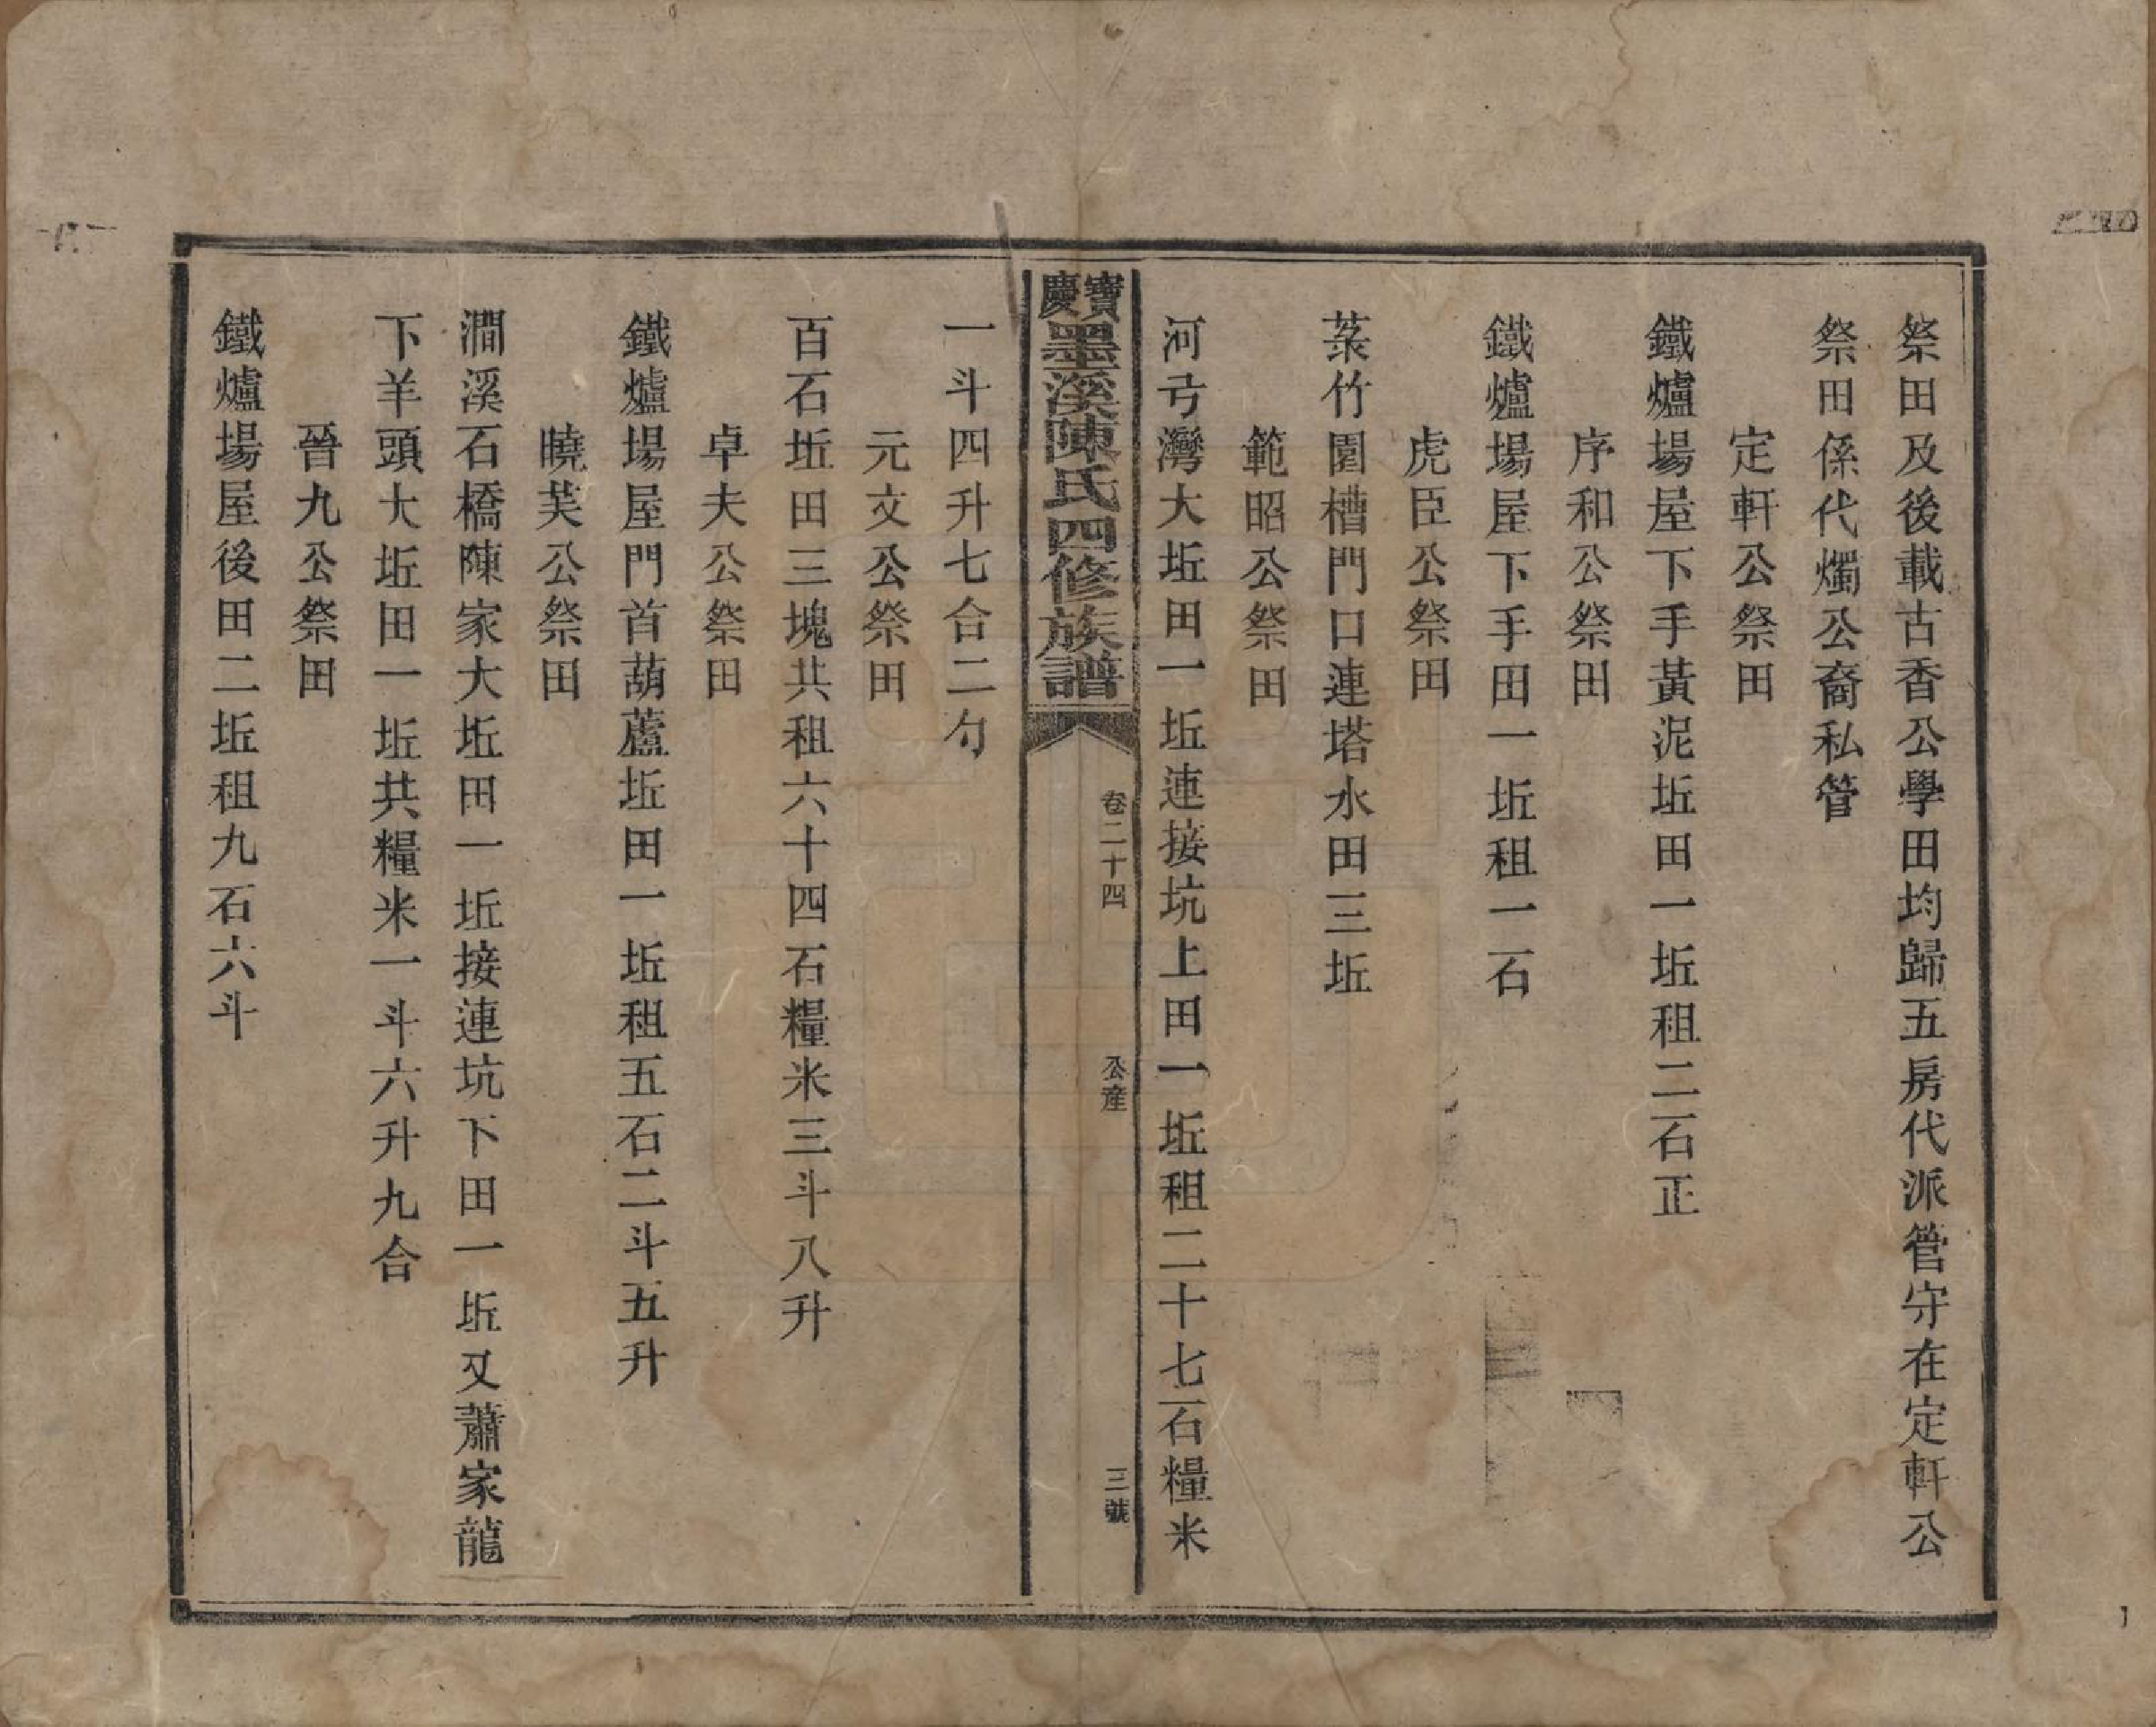 祭田及後載古香公學田均歸五房代派管守在定軒公
祭田係代燭公裔私管
定軒公祭田
鐵爐場屋下手黃泥坵田一坵租二石正
序和公祭田
鐵爐場屋下手田一坵租一石
虎臣公祭田
菉竹園槽門口連塔水田三坵
範昭公祭田
河弓灣大坵田一坵連接坑上田一坵租二十七石糧米
寶慶墨溪陳氏四修族譜
卷二十四
公產
三號
一斗四升七合二勺
元文公祭田
百石坵田三塊共租六十四石糧米三斗八升
卓夫公祭田
鐵爐場屋門首葫蘆坵田一坵租五石二斗五升
曉芙公祭田
澗溪石橋陳家大坵田一坵接連坑下田一坵又蕭家龍
下羊頭大坵田一坵共糧米一斗六升九合
晉九公祭田
鐵爐場屋後田二坵租九石六斗